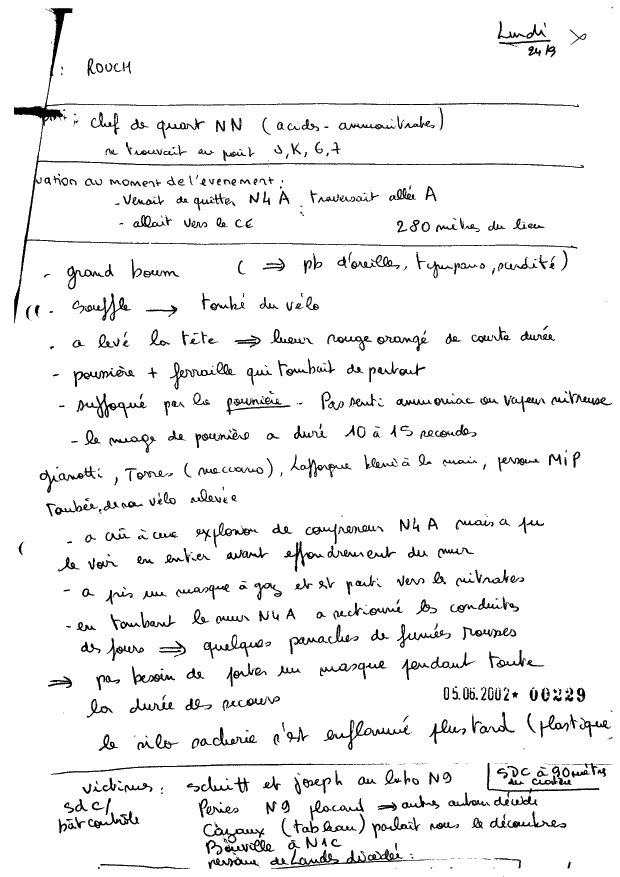 Lundi
24/9
: ROUCH
: chef de quart NN (acides - ammonitrates)
se trouvait au point J, K, 6, 7
uation au moment de l'évènement :
- Venait de quitter N4 A, traversait allée A
- allait vers le CE 280 mètres du lieu
- grand boum ( ⇒ pb d'oreilles, tympans, surdité)
- souffle → tombé du vélo
- a levé la tête ⇒ lueur rouge orangé de courte durée
- poussière + ferraille qui tombait de partout
- suffoqué par la poussière - Pas senti ammoniac ou vapeur nitreuse
- le nuage de poussière a duré 10 à 15 secondes
Gianotti, Torres (meccano), Lafforgue blessé à la main, personne MIP
tombée de son vélo relevée
- a cru à une explosion de compresseur N4 A mais a pu
le voir en entier avant effondrement du mur
- a pris un masque à gaz et est parti vers le nitrates
- en tombant le mur N4 A a sectionné les conduites
des fours ⇒ quelques panaches de fumées rousses
⇒ pas besoin de porter un masque pendant toute
la durée des secours
05.06.2002* 00229
le silo sacherie s'est enflammé plus tard (plastique
victimes : Schmitt et Joseph au labo N9
SDC à 90 mètres
du cratère
SdC/
bât contrôle
Peries N9 placard → autres autour décédé
Cazaux (tableau) parlait sous le décombres
Bouville à N1C
personne de Landes décédée :